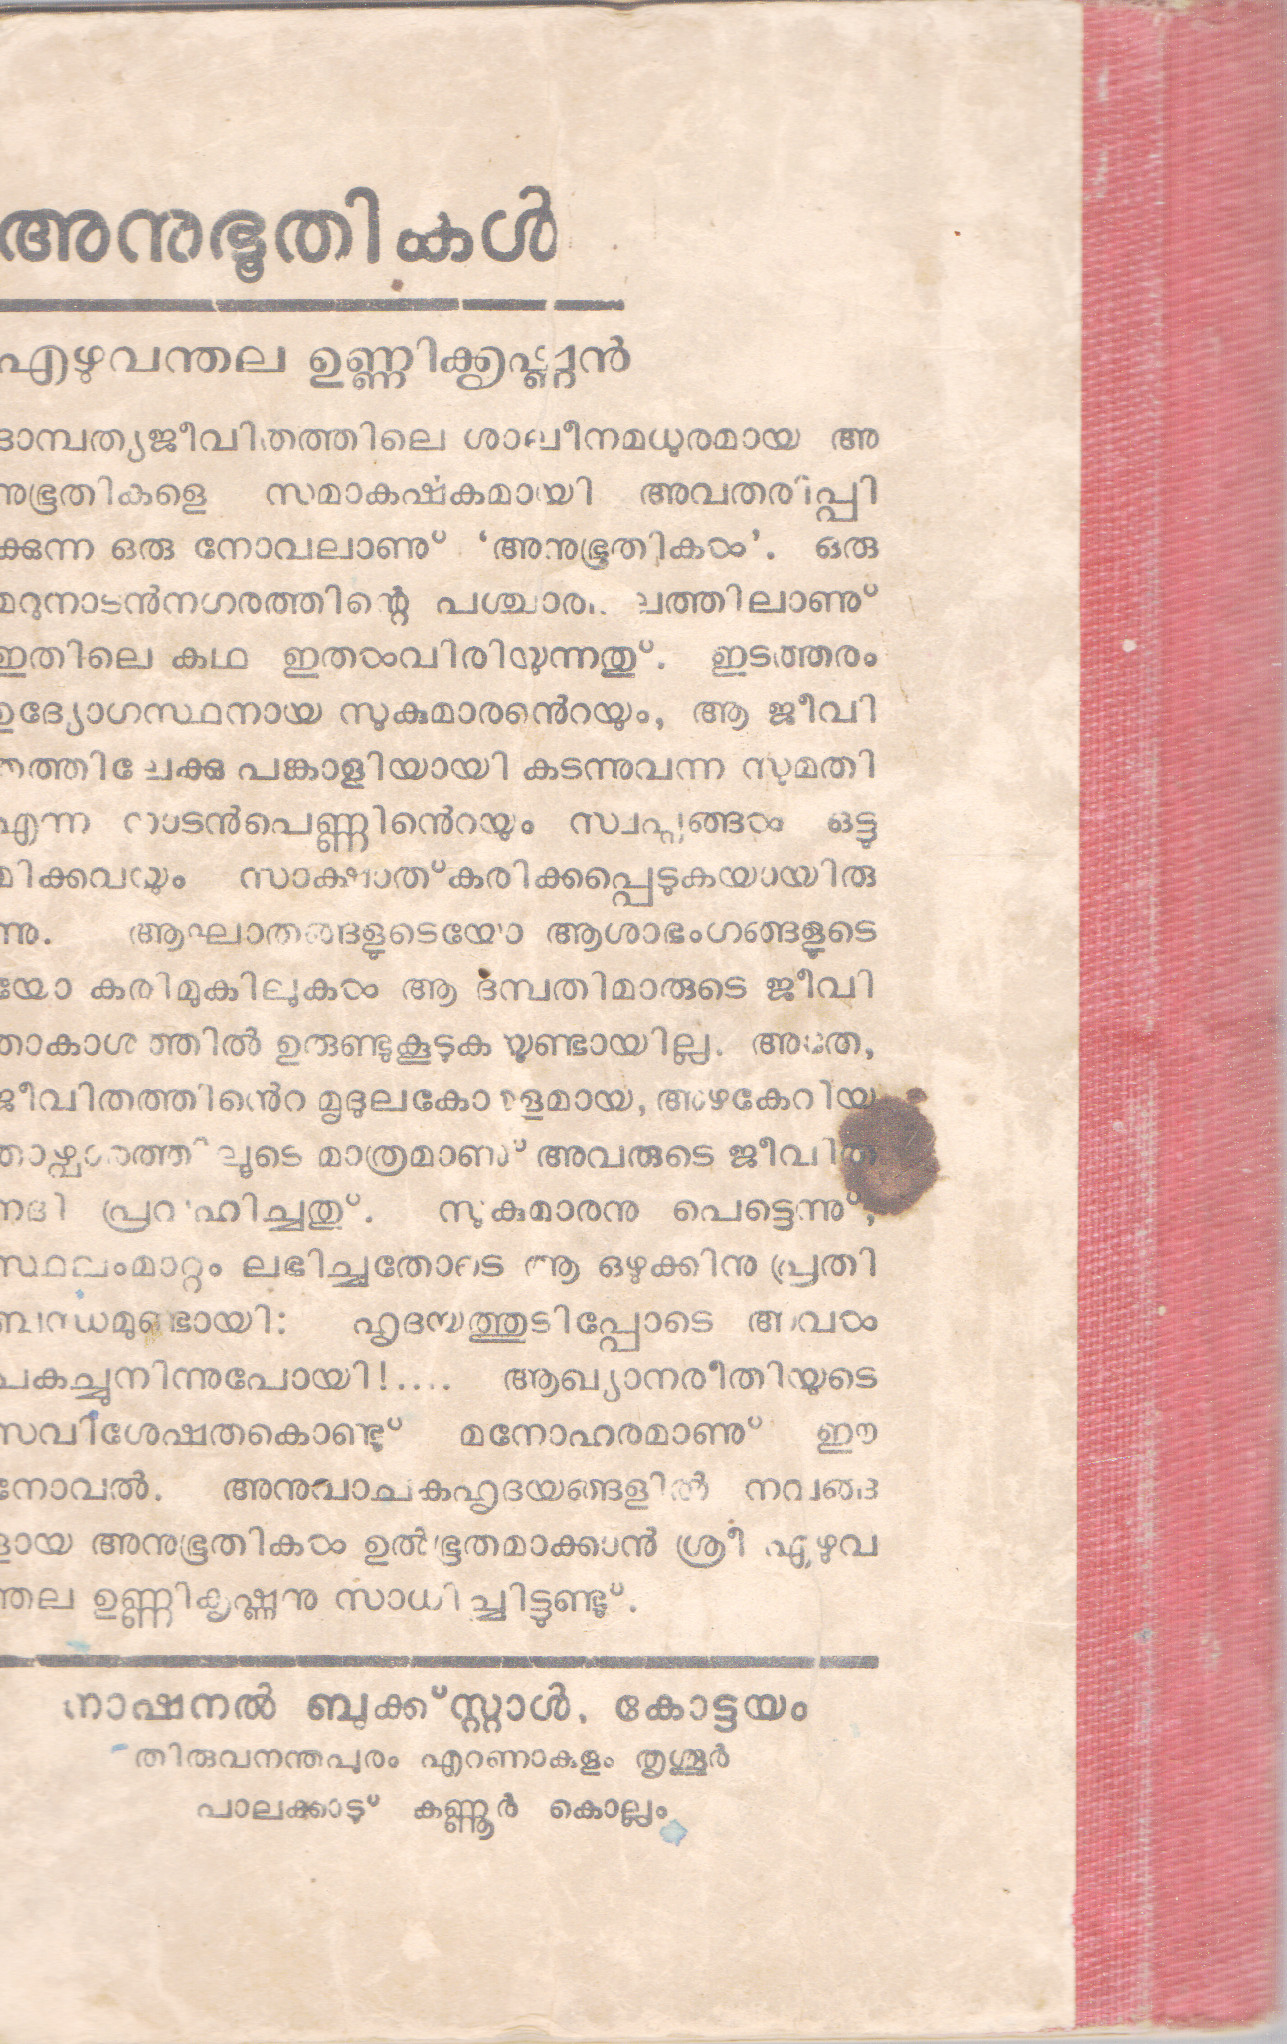 അനുഭൂതികൾ
എഴുവന്തല ഉണ്ണിക്കൃഷ്ണൻ
ദാമ്പത്യജീവിതത്തിലെ ശാലീനമധുരമായ അ
നുഭൂതികളെ സമാകർഷകമായി അവതരിപ്പി
ക്കുന്ന ഒരു നോവലാണു് ‘അനുഭൂതികൾ’. ഒരു
മറുനാടൻനഗരത്തിന്റെ പശ്ചാത്തലത്തിലാണു്
ഇതിലെ കഥ ഇതൾവിരിയുന്നതു്. ഇടത്തരം
ഉദ്യോഗസ്ഥനായ സുകുമാരൻെറയും, ആ ജീവി
തത്തിലേക്കു പങ്കാളിയായി കടന്നുവന്ന സുമതി
എന്ന നാടൻപെണ്ണിൻെറയും സ്വപ്നങ്ങൾ ഒട്ടു
മിക്കവയും സാക്ഷാത്കരിക്കപ്പെടുകയായിരു
ന്നു. ആഘാതങ്ങളുടെയോ ആശാഭംഗങ്ങളുടെ
യോ കരിമുകിലുകൾ ആ ദമ്പതിമാരുടെ ജീവി
താകാശത്തിൽ ഉരുണ്ടുകൂടുകയുണ്ടായില്ല. അതേ,
ജീവിതത്തിൻെറ മൃദുലകോമളമായ, അഴകേറിയ
താഴ്വാരത്തിലൂടെ മാത്രമാണു് അവരുടെ ജീവിത
നദി പ്രവഹിച്ചതു്. സുകുമാരനു പെട്ടെന്നു്,
സ്ഥലംമാറ്റം ലഭിച്ചതോടെ ആ ഒഴുക്കിനു പ്രതി
ബന്ധമുണ്ടായി: ഹൃദയത്തുടിപ്പോടെ അവൾ
പകച്ചുനിന്നുപോയി!.... ആഖ്യാനരീതിയുടെ
സവിശേഷതകൊണ്ടു് മനോഹരമാണു് ഈ
നോവൽ. അനുവാചകഹൃദയങ്ങളിൽ നവങ്ങ
ളായ അനുഭൂതികൾ ഉൽഭൂതമാക്കാൻ ശ്രീ എഴുവ
ന്തല ഉണ്ണികൃഷ്ണനു സാധിച്ചിട്ടുണ്ടു്.
നാഷനൽ ബുക്ക്സ്റ്റാൾ, കോട്ടയം
തിരുവനന്തപുരം എറണാകുളം തൃശ്ശൂർ
പാലക്കാടു് കണ്ണൂർ കൊല്ലം